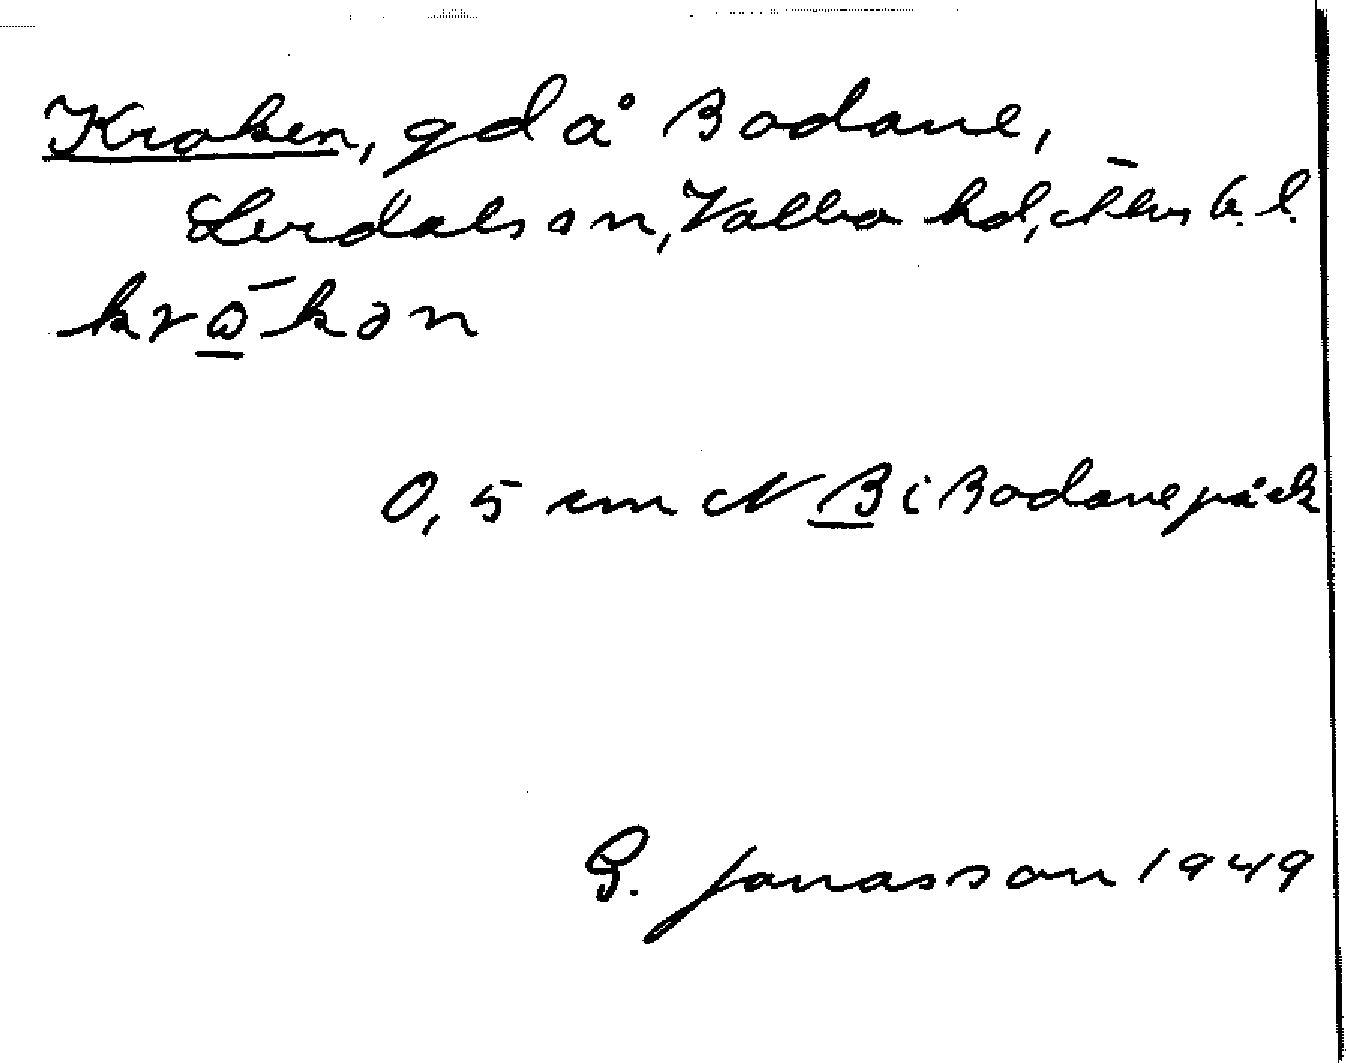 Kroken, gd å Bodane,
Lerdals sn, Valbo hd, Älvsb. l.
0,5 cm N B i Bodane
G. Jonasson 1949